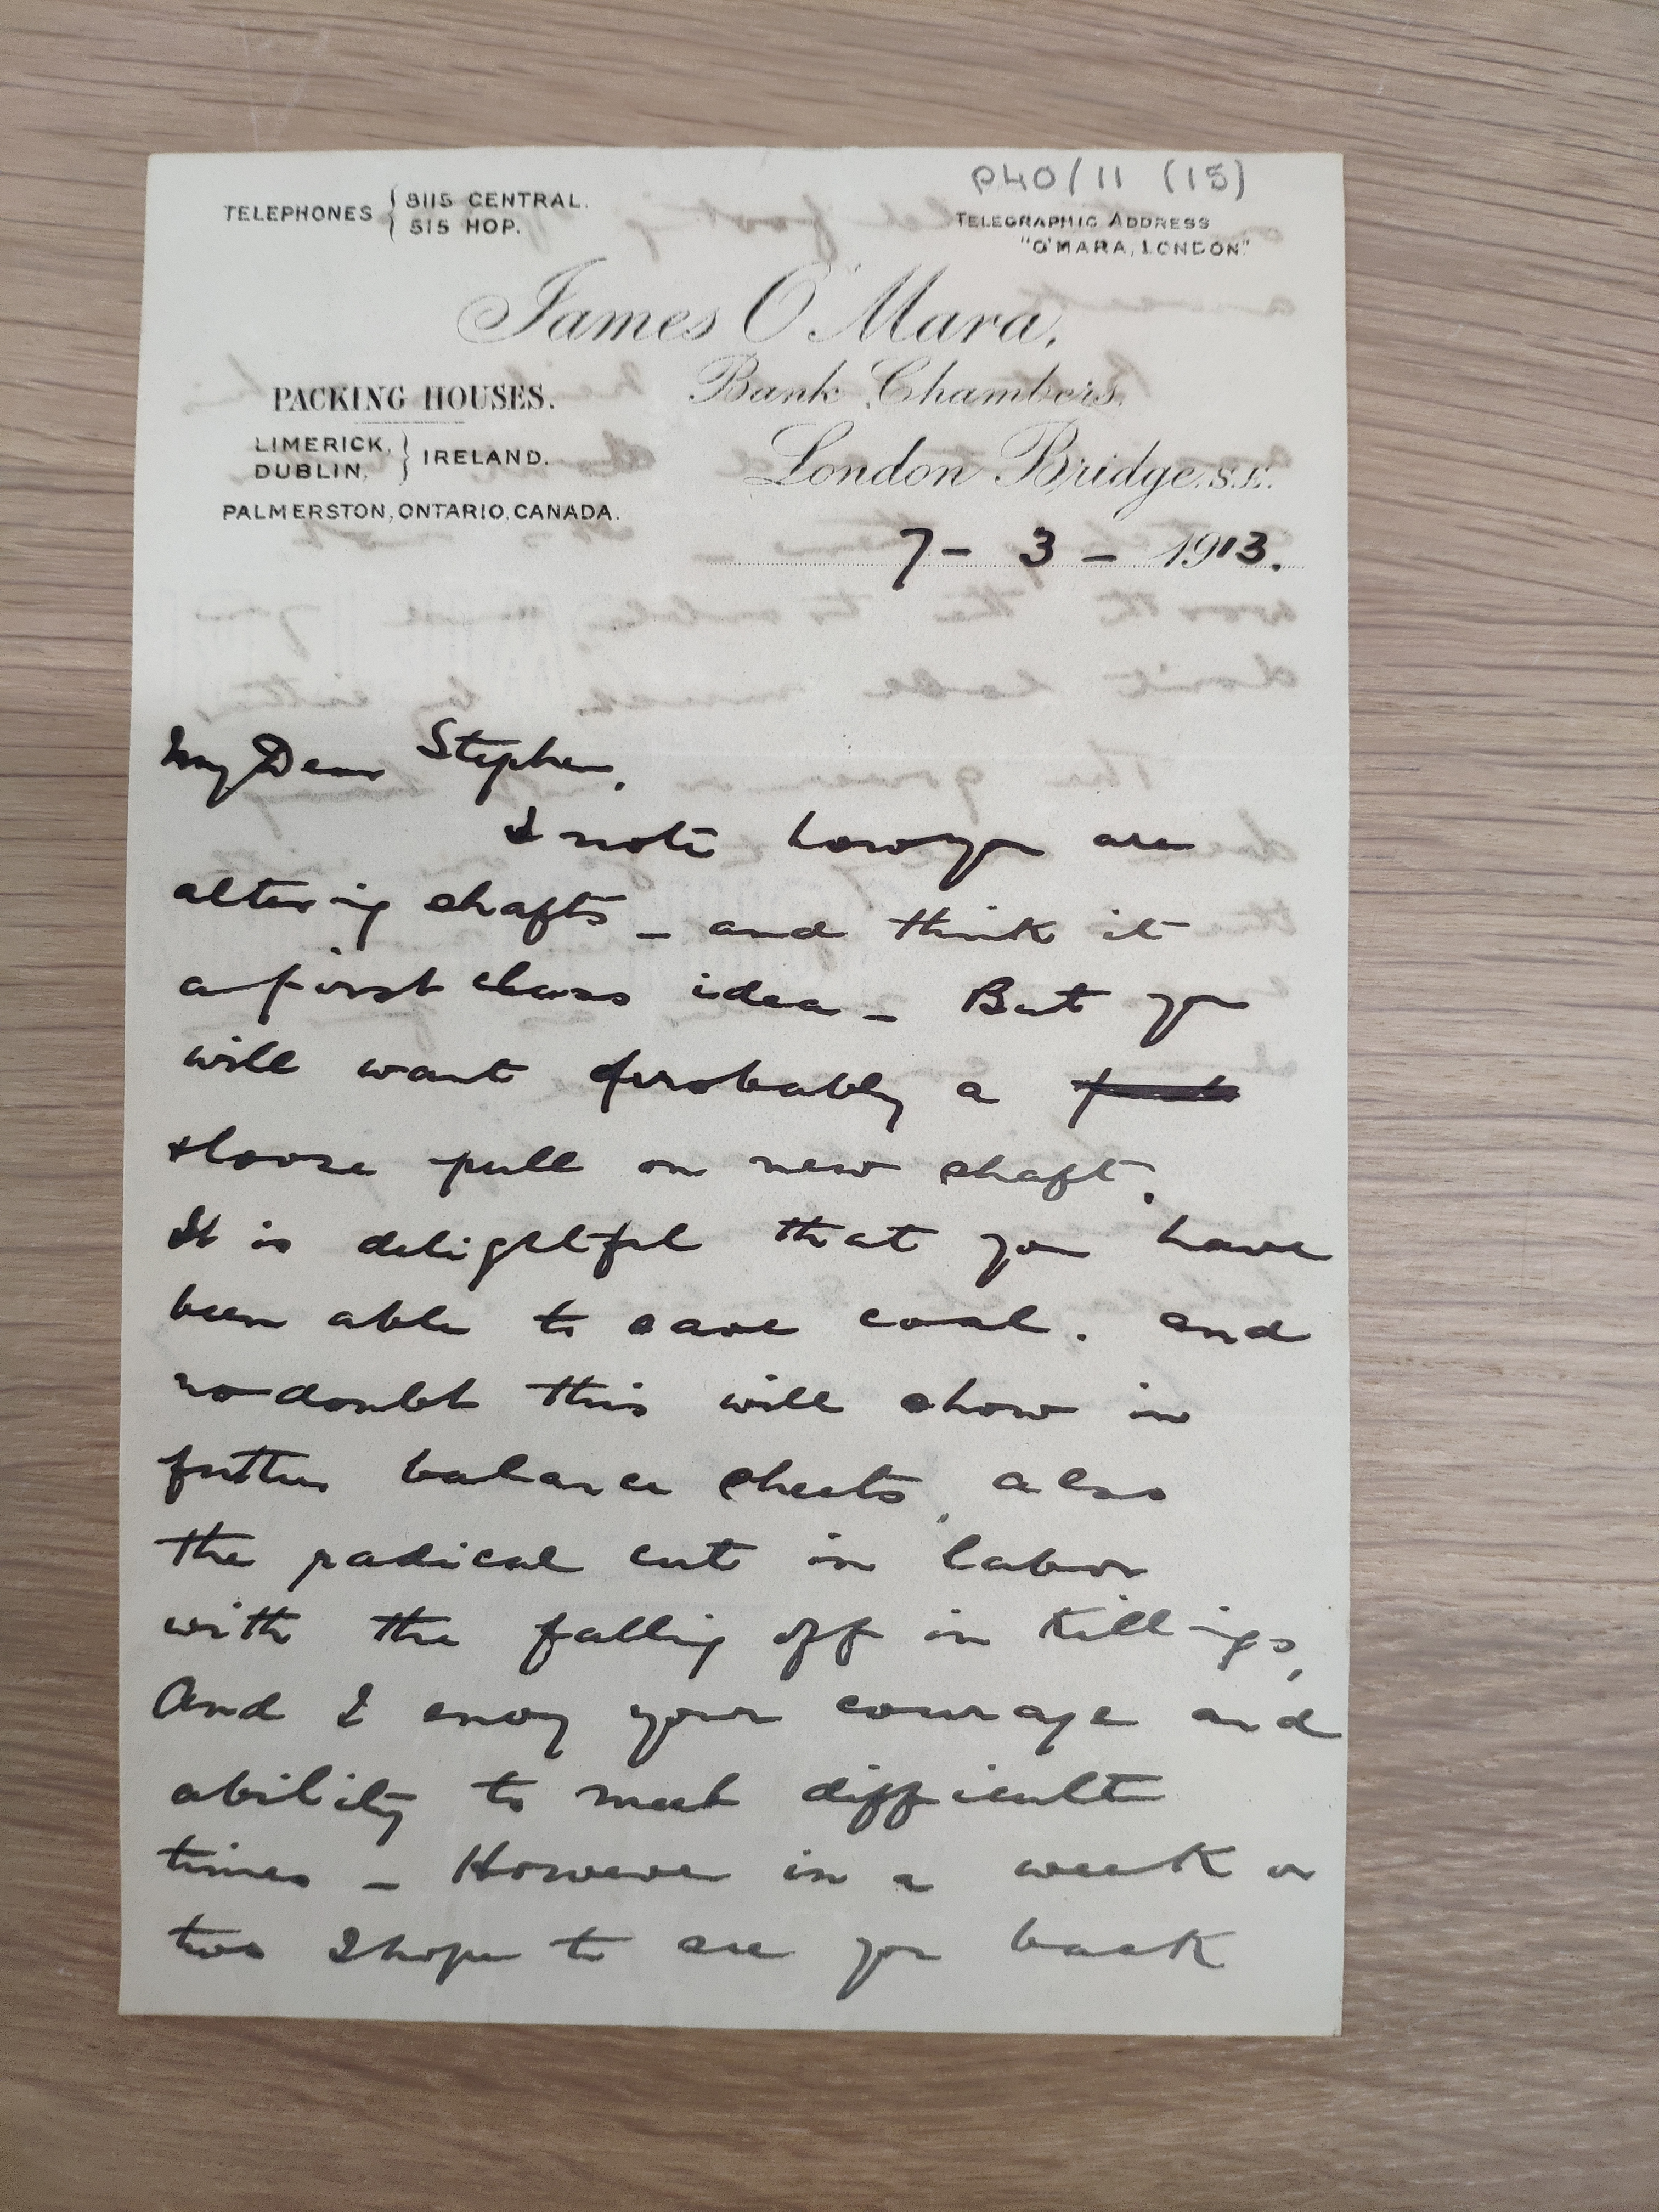 P40/11 (15)
TELEPHONES { 8115 CENTRAL.
515 HOP.
TELEGRAPHIC ADDRESS
"O'MARA, LONDON"
James O'Mara,
PACKING HOUSES.
Bank Chambers,
LIMERICK,
DUBLIN, } IRELAND.
London Bridge, S.E.
PALMERSTON, ONTARIO, CANADA.
7 - 3 - 1913.
My Dear Stephen,
I note how you are
altering shafts - and think it
a first class idea - But you
will want probably a
loose pull on new shaft.
It is delightful that you have
been able to save coal. and
no doubt this will show in
further balance sheets, also
the radical cut in labor
with the falling off in killings,
And I envy your courage and
ability to meet difficult
times - However in a week or
two I hope to see you back